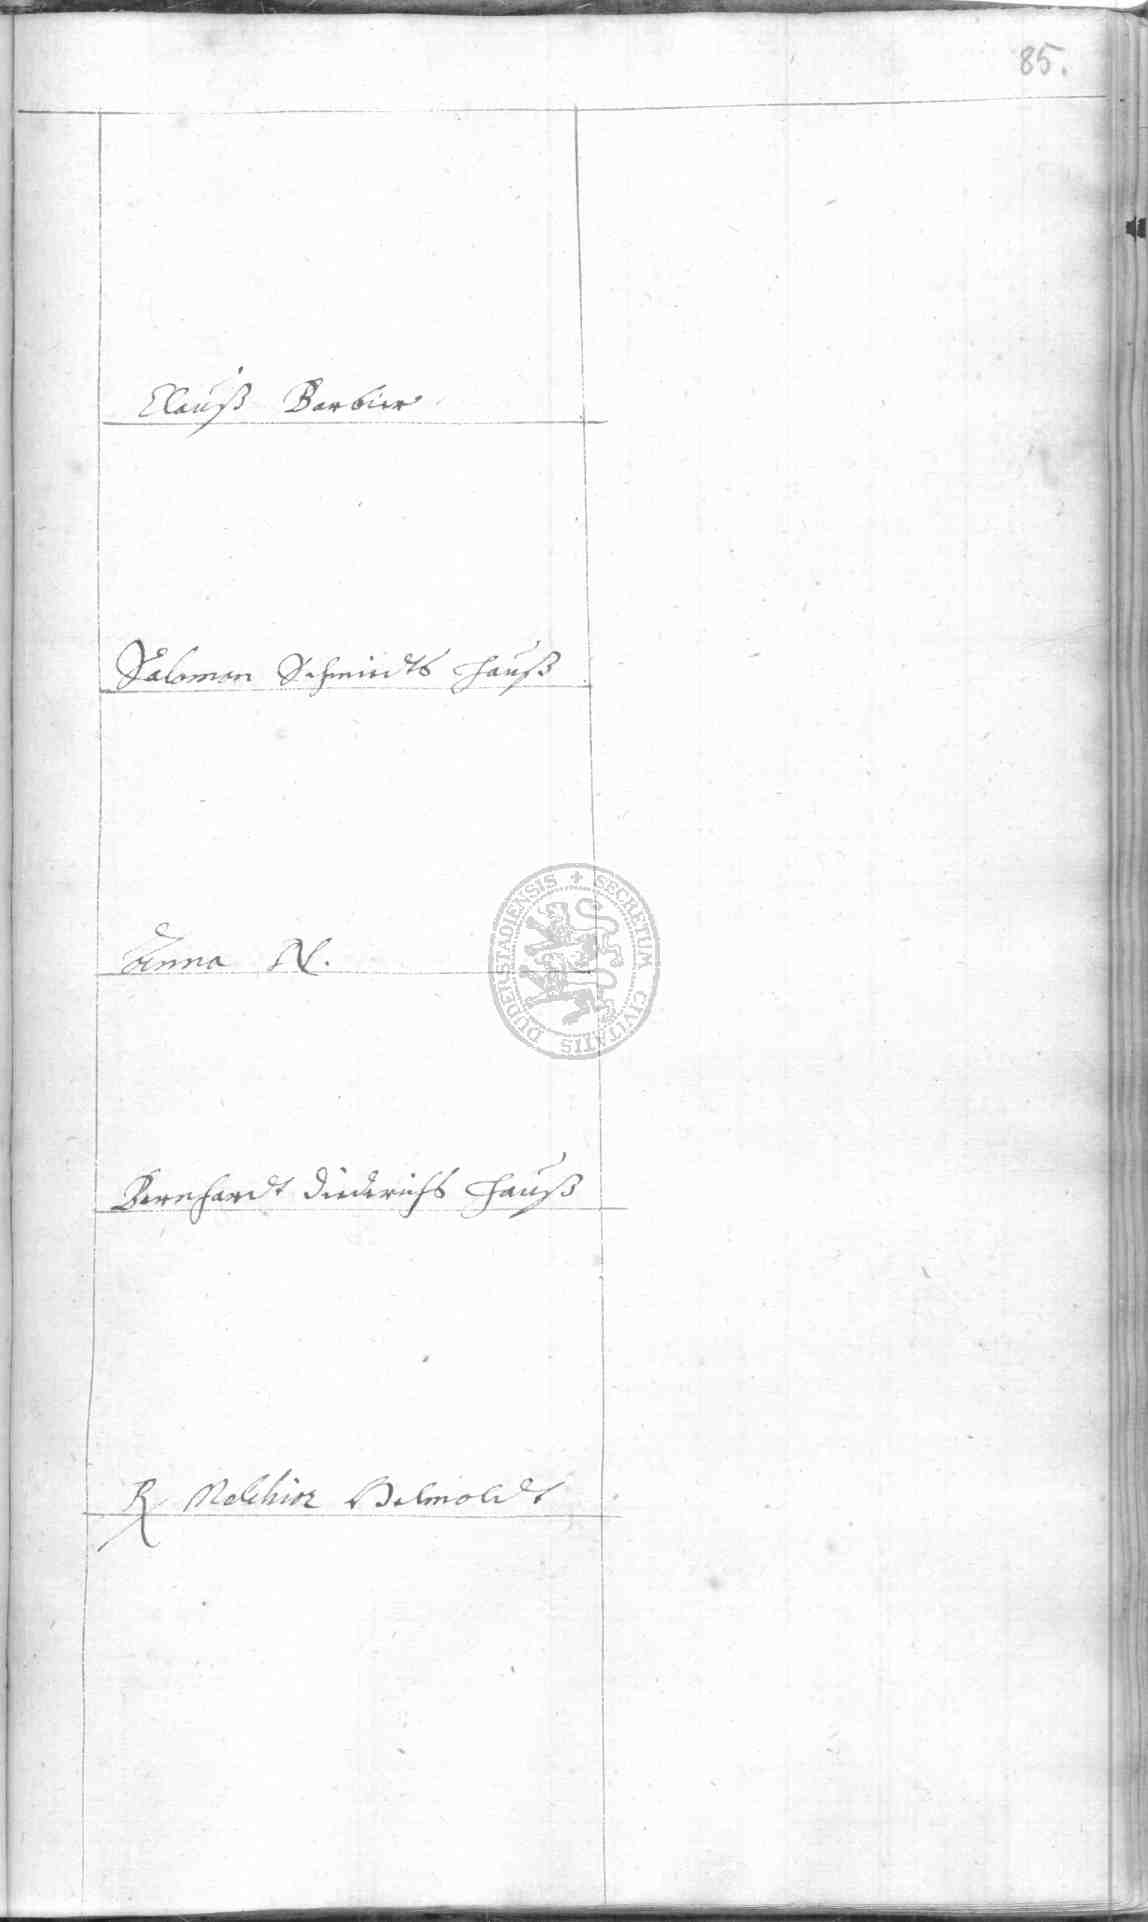 85.
Clauß Barbier
Salomon Schmidts Hauß
Anna N.
DUDERSTADIENSIS + SECRETUM CIVITATIS
Bernhardt Diederichs Hauß
R Melchior Helmoldt